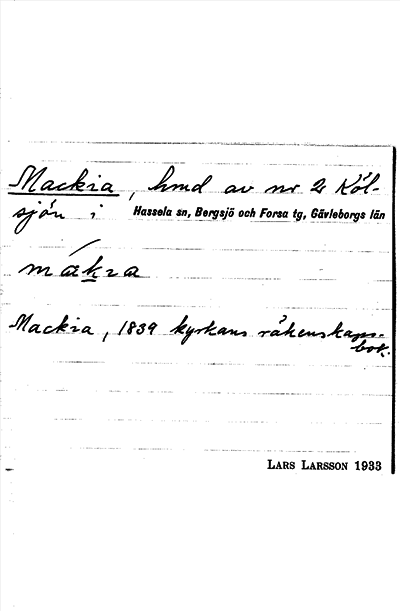 Mackra, hmd av nr 2 Köl-
sjön i Hassela sn, Bergsjö och Forsa tg, Gävleborgs län
makra
Mackra, 1839 kyrkans räkenskaps-
bok.
LARS LARSSON 1933